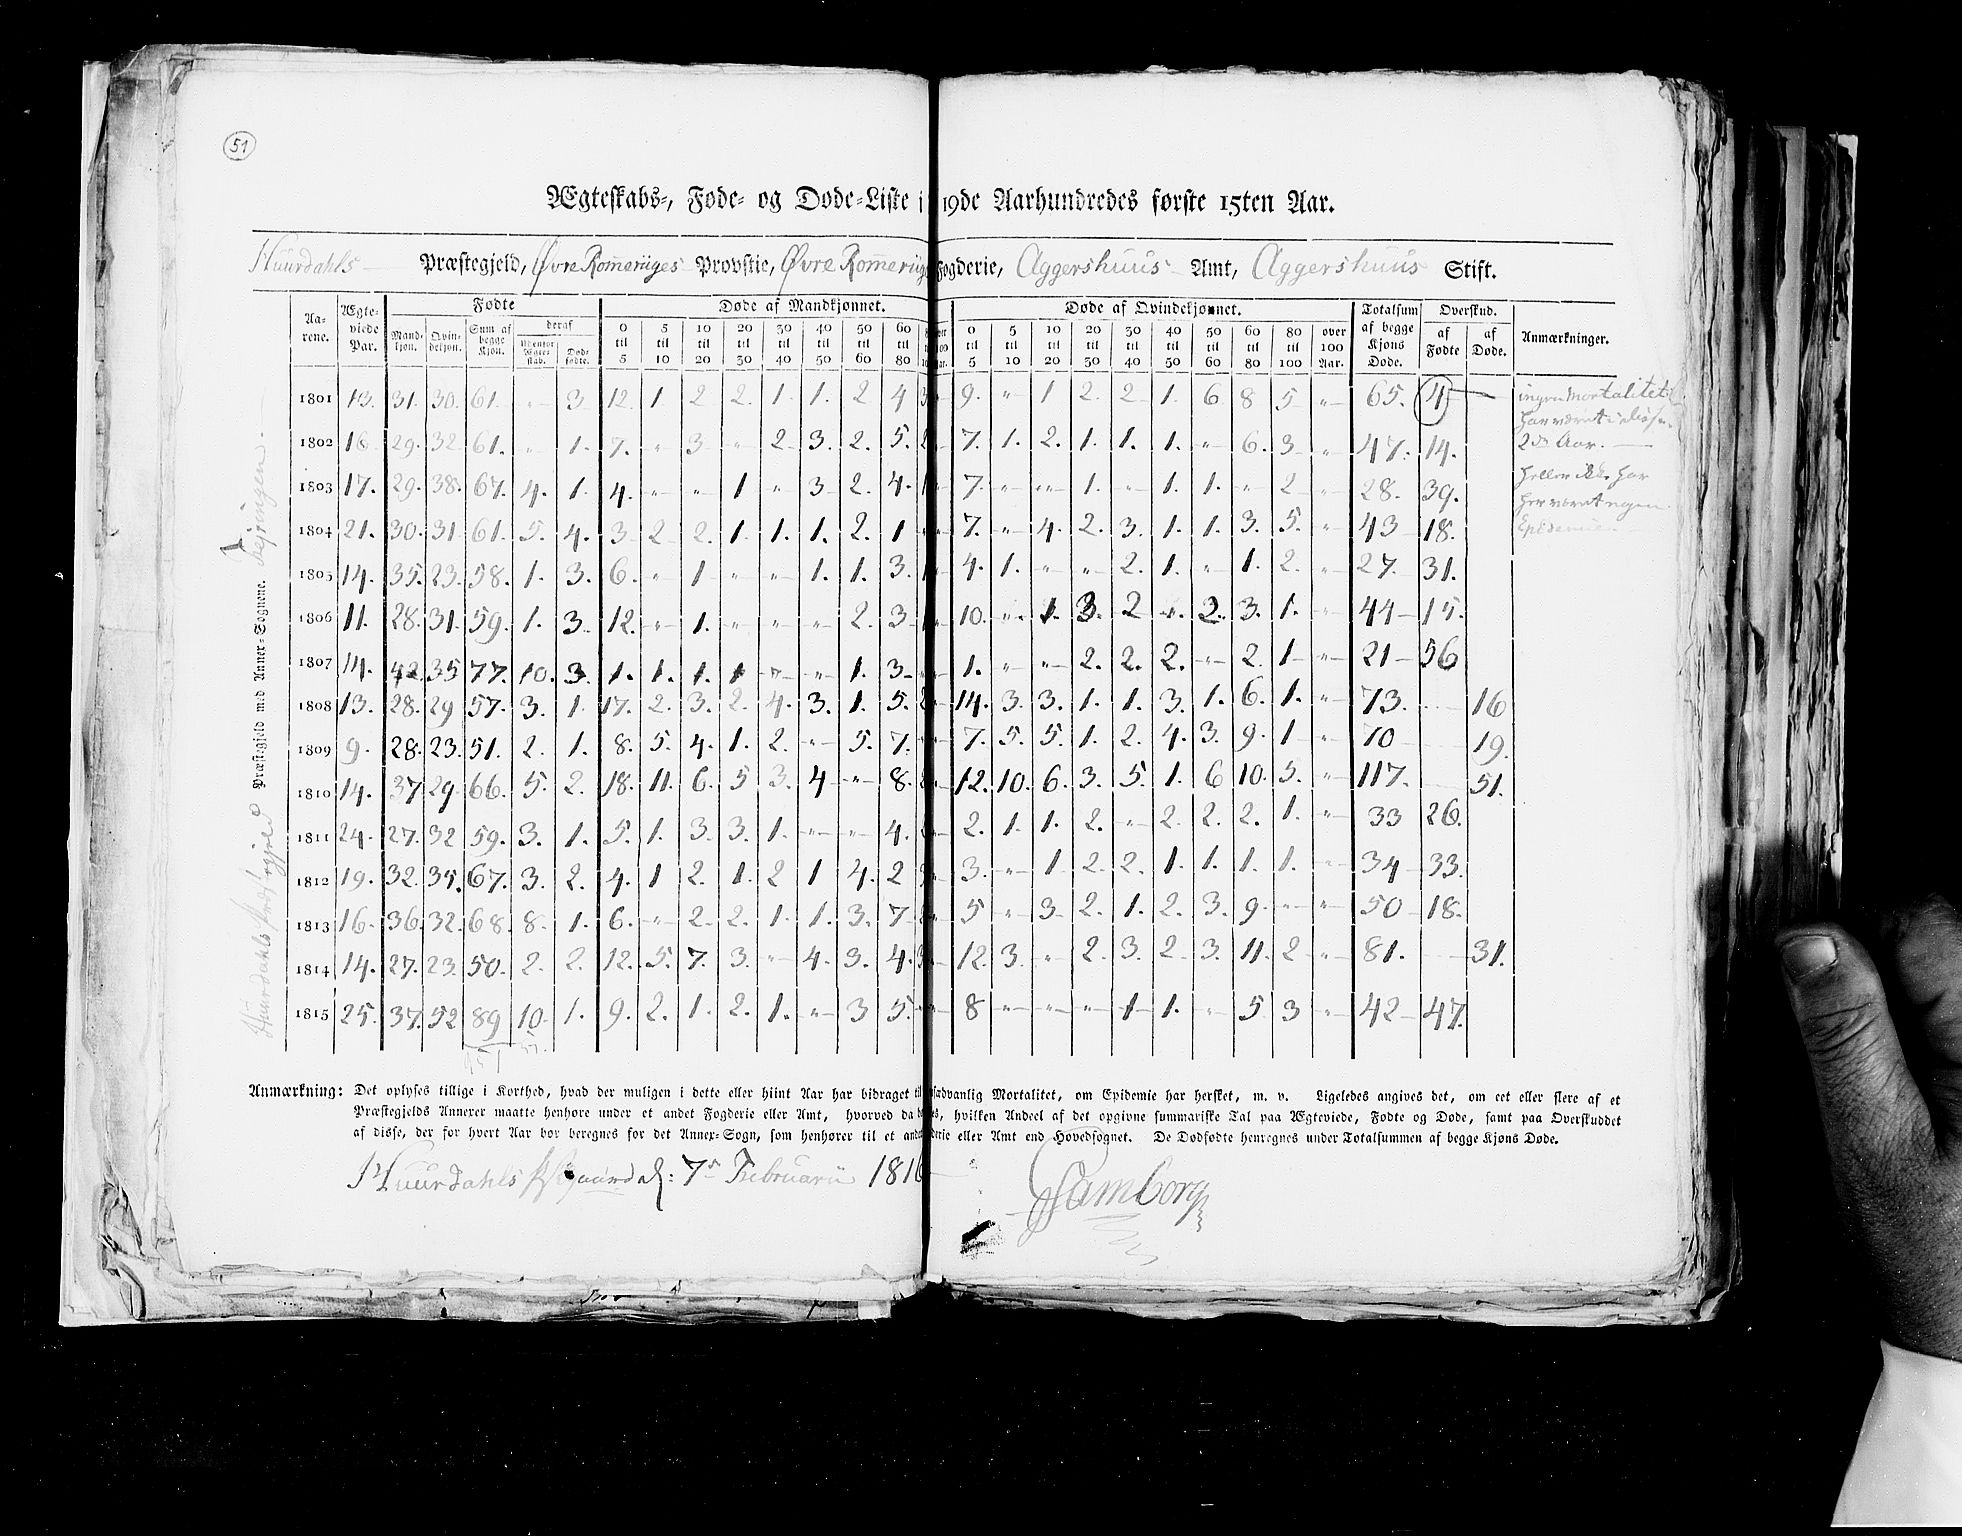 51
Ægteskabs-, Føde- og Døde-Liste i 19de Aarhundredes første 15ten Aar.
Huurdahls Præstegjeld, Øvre Romeriiges Provstie, Øvre Romeriigs Fogderie, Aggershuus Amt, Aggershuus Stift.
Fødte Døde af Mandkjønnet. Døde af Qvindekjønnet. Totalsum af begge Kjøns Døde. Overskud. Anmærkninger.
Aarene. Ægteviede Par. Mandkjøn. Qvindekjøn. Sum af begge Kjøn. deraf Udenfor Ægteskab. Dødfødte. 0 til 5 5 til 10 10 til 20 20 til 30 30 til 40 40 til 50 50 til 60 60 til 80 0 til 5 5 til 10 10 til 20 20 til 30 30 til 40 40 til 50 50 til 60 60 til 80 80 til 100 over 100 Aar. af Fødte af Døde.
1801 13. 31. 30. 61. " 3 12. 1 2 2. 1 1. 2 4 9. " 1 2. 2 1. 6 8 5 " 65. 4 ingen Mortalitet
har været i disse
1802 16 29. 32 61. " 1. 7. " 3 " 2 3. 2. 5. 7. 1. 2. 1. 1. 1. " 6. 3 " 47. 14. 2de Aar.
1803 17. 29. 38. 67. 4. 1. 4. " " 1 " 3 2. 4. 7. " " 1. " 1. 1. " 2 " 28. 39. heller ikke har
her været nogen
1804 21. 30. 31. 61. 5. 4. 3 2 2. 1 1. 1. 2. 1 7. " 4. 2. 3. 1. 1. 3. 5. " 43 18. Epidemie.
1805 14. 35. 23. 58. 1. 3. 6. " 1 " " 1. 1. 3. 4. 1. " " 2. 1. " 1. 2. " 27. 31.
1806 11. 28. 31. 59. 1. 3 12. " 1. " " " 2. 3 10. " 1. 3. 2 " 2. 3. 1. " 44 15.
1807 14. 42. 35 77. 10. 3. 1. 1. 1. 1 " " 1. 3 1. " " 2. 2. 2. " 2. 1 " 21 56
1808 13. 28. 29 57. 3. 1. 17. 2. 3. 2. 4. 3. 1. 5. 14. 3. 3. 1. 1. 3. 1. 6. 1. " 73. 16
1809 9. 28. 23. 51. 2. 1. 8. 5. 4. 1. 2. " 5. 7. 7. 5. 5. 1. 2. 4. 3. 9. 1 " 70 19.
1810 14. 37 29. 66. 5. 2. 18. 11. 6. 5 3. 4 " 8. 12. 10. 6. 3. 5. 1. 6 10. 5. " 117. 51.
1811 24. 27. 32 59. 3. 1. 5. 1. 3 3. 1. " " 4. 2. 1. 1. 2. " 2. 2. 2. 1. " 33 26.
1812 19. 32. 35. 67. 3. 2. 4. 1 2. 1. 2 1 4. 2 3. " 1 2. 2. 1. 1. 1. 1. " 34 33.
1813 16. 36. 32. 68. 8. 1. 6. " 2. 2. 1. 1. 3. 7 5 " 3. 2. 1. 2. 3. 9. " " 50 18.
1814 14. 27. 23. 50. 2. 2. 12. 5. 7. 3. " 4. 3. 4. 12. 3. " 2. 3. 2. 3. 11. 2 " 81. 31.
1815 25. 37. 52 89 10. 1. 9. 2. 1. 2. 1. " 3 5. 8 " " " 1 1. " 5 3 " 42 47.
951
Huurdahls Præstegjeld
Præstegjeld med Annex-Sognene.
Anmærkning: Det oplyses tillige i Korthed, hvad der muligen i dette eller hiint Aar har bidraget til usædvanlig Mortalitet, om Epidemie har hersket, m. v. Ligeledes angives det, om eet eller flere af et
Præstegjelds Annexer maatte henhøre under et andet Fogderie eller Amt, hvorved da , hvilken Andeel af det opgivne summariske Tal paa Ægteviede, Fødte og Døde, samt paa Overskuddet
af disse, der for hvert Aar bør beregnes for det Annex-Sogn, som henhører til et andet Fogderie eller Amt end Hovedsognet. De Dødfødte henregnes under Totalsummen af begge Kjøns Døde.
Huurdahls Februarii 1816